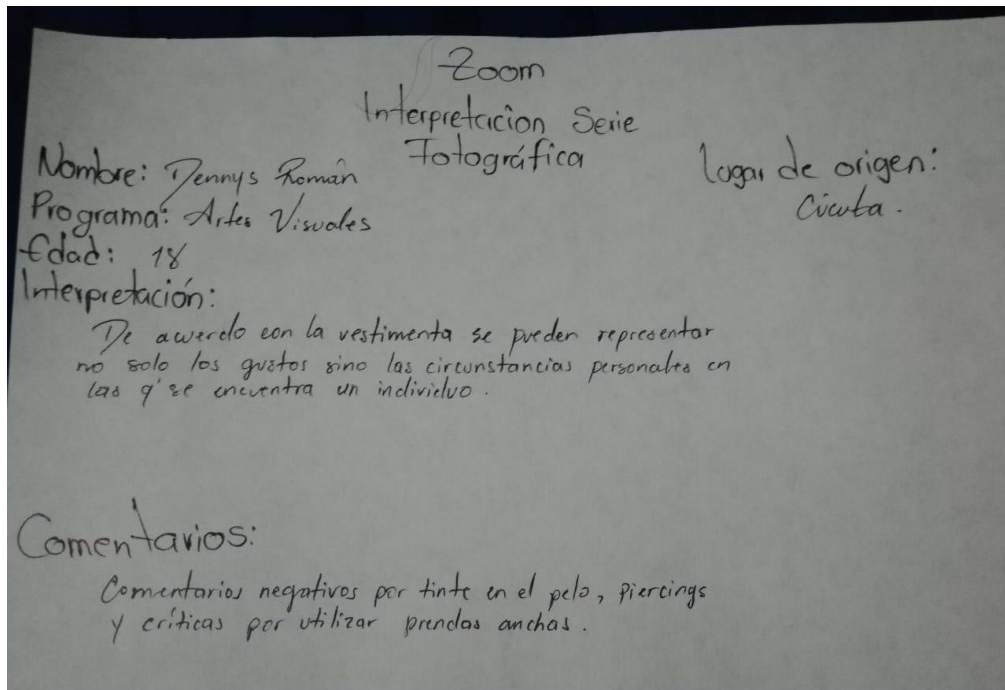 Zoom
Interpretacion Serie
Fotográfica
Nombre: Dennys Román
Programa: Artes Visuales
Edad: 18
Lugar de origen:
Cúcuta.
Interpretación:
De acuerdo con la vestimenta se pueden representar
no solo los gustos sino las circunstancias personales en
las q' se encuentra un individuo.
Comentarios:
Comentarios negativos por tinte en el pelo, piercings
y críticas por utilizar prendas anchas.